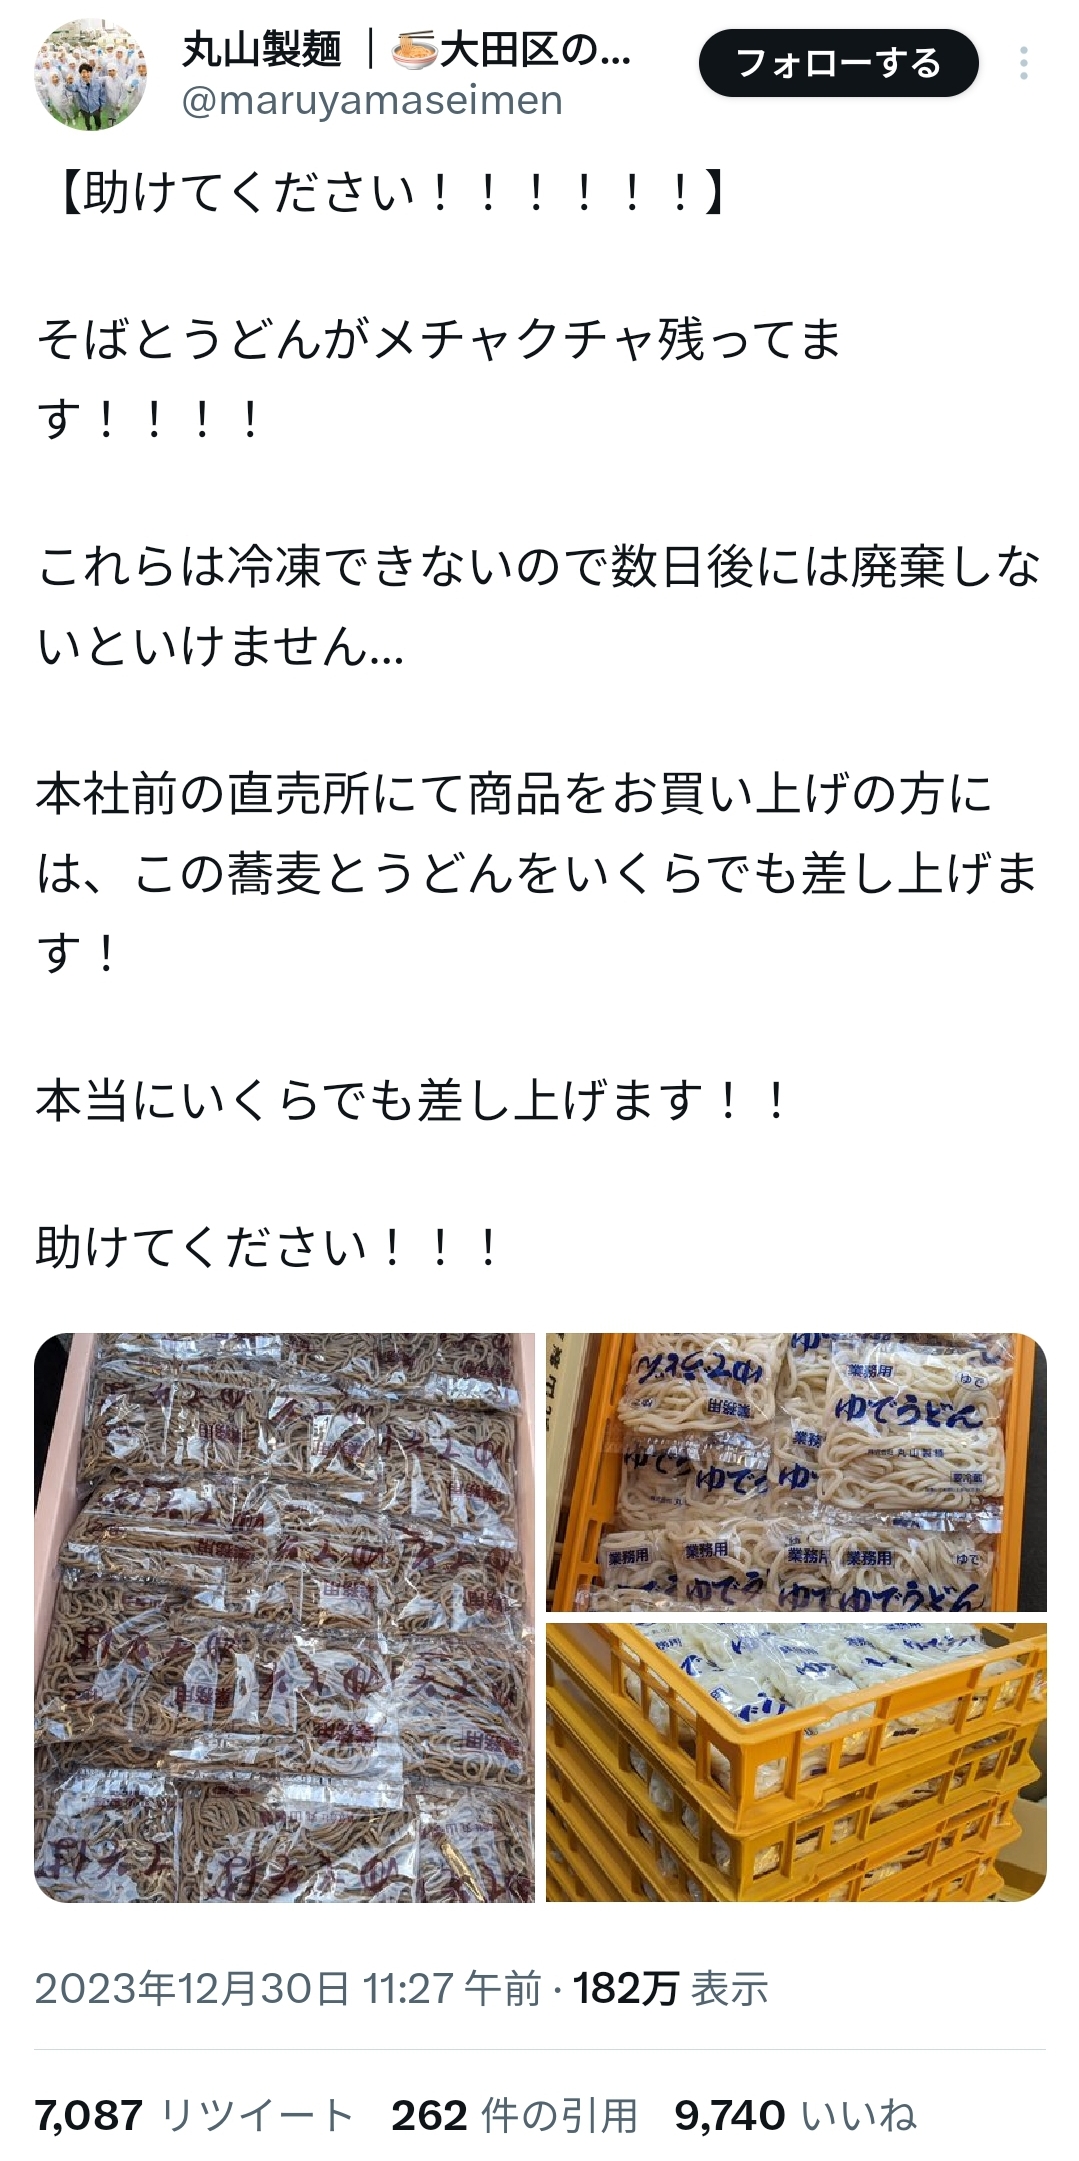 丸山製麺 ｜🍜大田区の...
フォローする
@maruyamaseimen
【助けてください！！！！！！】
そばとうどんがメチャクチャ残ってま
す！！！！
これらは冷凍できないので数日後には廃棄しな
いといけません...
本社前の直売所にて商品をお買い上げの方に
は、この蕎麦とうどんをいくらでも差し上げま
す！
本当にいくらでも差し上げます！！
助けてください！！！
業務用
ゆで
ゆでうどん
株式会社 丸山製麺
要冷蔵
業務用
業務用
業務用
ゆで
ゆでうどん
2023年12月30日 11:27 午前 · 182万 表示
7,087 リツイート 262 件の引用 9,740 いいね